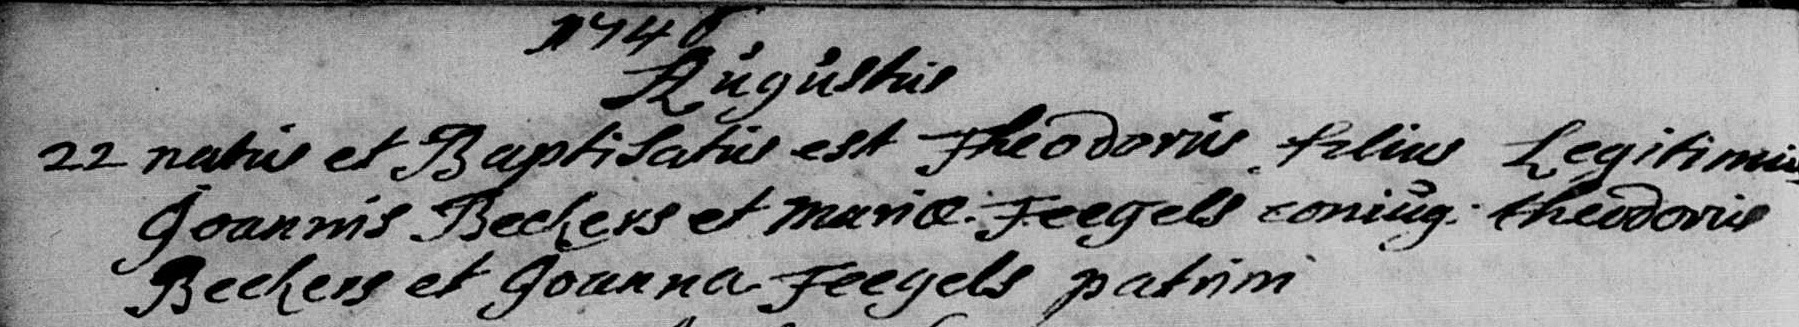 1746
Augustus
22 natus et Baptisatus est Theodorus filius Legitimus
Joannis Beckers et mariæ Feegels coniug. theodorus
Beckers et Joanna Feegels patrini